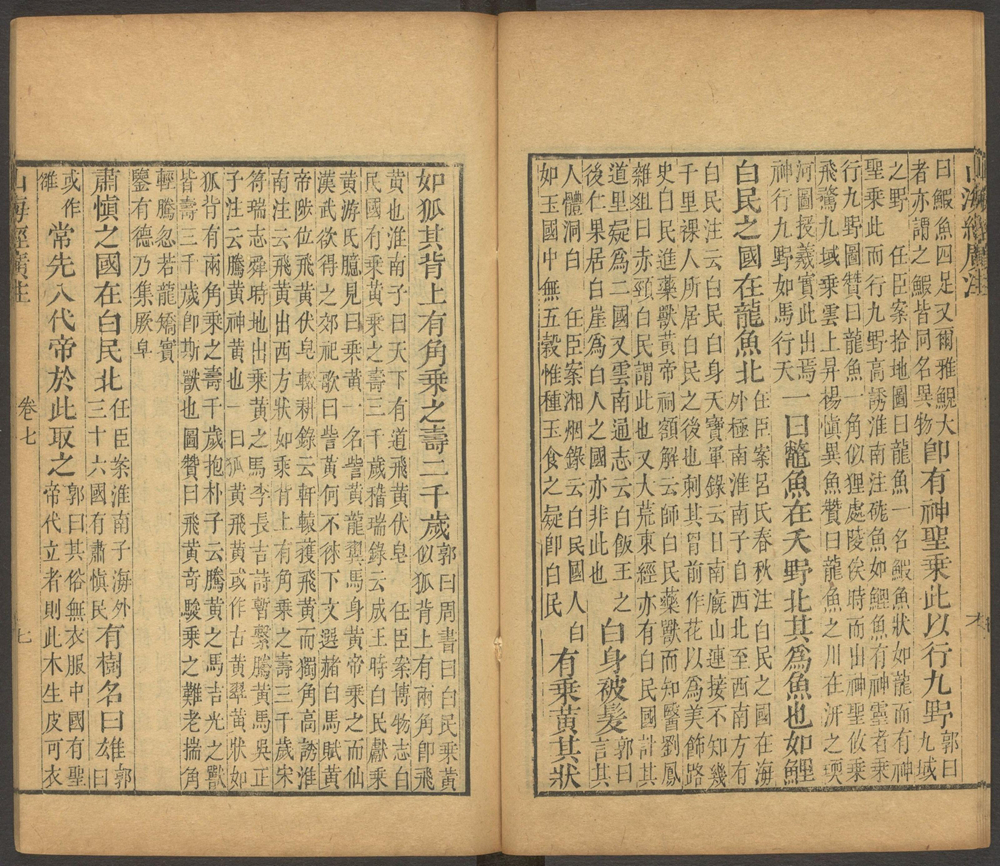 山海經廣注
曰鰕魚四足又爾雅鯢大
者亦謂之鰕皆同名異物
卽有神聖乘此以行九野
郭曰
九域
之野 任臣案拾地圖曰龍魚一名鰕魚狀如龍而有神
聖乘此而行九野高誘淮南注硥魚如鯉魚有神靈者乘
行九野圖贊曰龍魚一角似狸處陵俟時而出神聖攸乘
飛騖九域乘雲上昇楊愼異魚贊曰龍魚之川在汧之堧
河圖授羲實此出焉
神行九野如馬行天
一曰鼈魚在夭野北其爲魚也如鯉
白民之國在龍魚北
任臣案呂氏春秋注白民之國在海
外極南淮南子自西北至西南方有
白民注云白民白身天寶軍錄云日南廐山連接不知幾
千里裸人所居白民之後也刺其胷前作花以爲美飾路
史白民進藥獸黃帝祠額解云師白民藥獸而知醫劉鳳
雜俎曰赤頸白民謂此也又大荒東經亦有白民國計其
道里疑爲二國又雲南通志云白飯王之
後仁果居白崖爲白人之國亦非此也
白身被髮
郭曰
言其
人體洞白 任臣案湘烟錄云白民國人白
如玉國中無五穀惟種玉食之疑卽白民
有乘黃其狀
如狐其背上有角乘之壽二千歲
郭曰周書曰白民乘黃
似狐背上有兩角卽飛
黃也淮南子曰天下有道飛黃伏皂 任臣案博物志白
民國有乘黃乘之壽三千歲稽瑞錄云成王時白民獻乘
黃游氏臆見曰乘黃一名訾黃龍翼馬身黃帝乘之而仙
漢武欲得之郊祀歌曰訾黃何不徠下文選赭白馬賦黃
帝陟位飛黃伏皂輟耕錄云軒轅獲飛黃而獨角高誘淮
南注云飛黃出西方狀如乘背上有角乘之壽三千歲宋
符瑞志舜時地出乘黃之馬李長吉詩暫繫騰黃馬吳正
子注云騰黃神黃也一曰狐黃飛黃或作古黃翠黃狀如
狐背有兩角乘之壽千歲抱朴子云騰黃之馬吉光之獸
皆壽三千歲卽斯獸也圖贊曰飛黃奇駿乘之難老揣角
輕騰忽若龍矯實
鑒有德乃集厥皁
肅愼之國在白民北
任臣案淮南子海外
三十六國有肅愼民
有樹名曰雄
郭曰
或作
雒
常先入代帝於此取之
郭曰其俗無衣服中國有聖
帝代立者則此木生皮可衣
山海經廣注 卷七 七